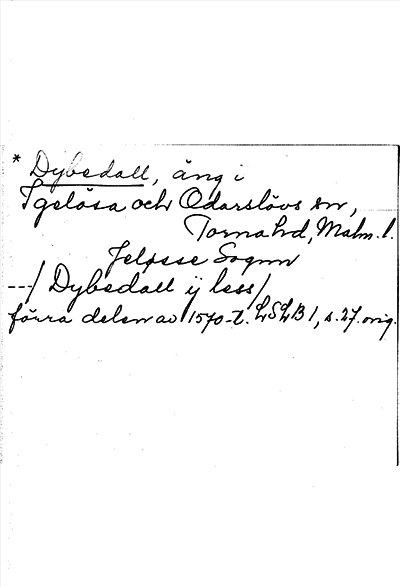 * Dybedall, äng i
Igelösa och Odarslövs snr,
Torna hd, Malm. l.
Jeløsse Sognn
--/ Dybedall ij less/
förra delen av 1570-t. LSLB 1, s. 27. orig.